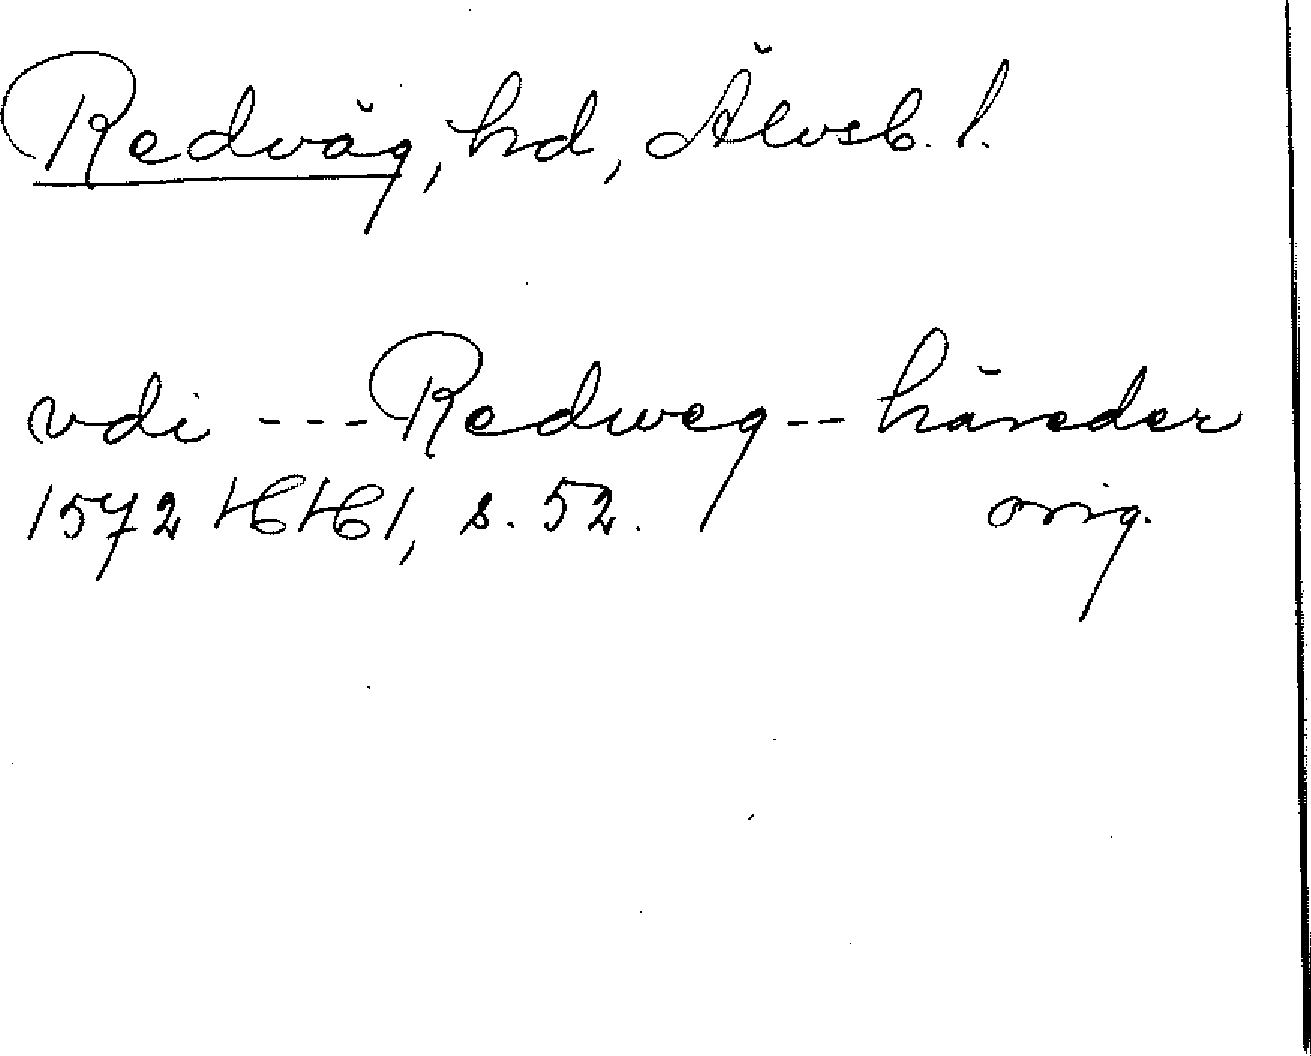 Redväg, hd, Älvsb. l.
vdi --- Redweg -- häreder
1572 HH 1, s. 52. orig.